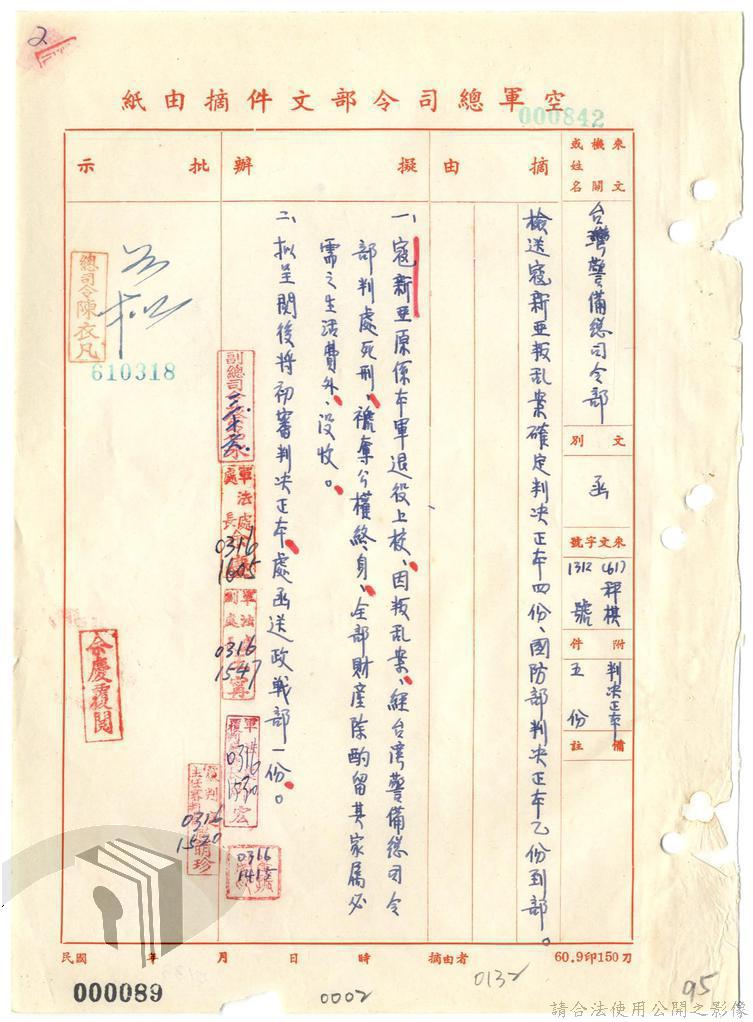 2
空軍總司令部文件摘由紙
000842
來文機關或姓名
台灣警備總司令部
文別
函
來文字號
(61)秤棋
1312號
附件
判決正本
五份
備註
摘由
檢送寇新亞叛乱案確定判決正本四份、國防部判決正本乙份到部。
擬辦
一、寇新亞原係本軍退役上校、因叛乱案、經台湾警備總司令
部判處死刑、褫奪公權終身、全部財產除酌留其家属必
需之生活費外、没收。
二、拟呈閱後將初審判決正本、處函送政戰部一份。
副總司令
軍法處處長
0316
1605
軍法處副處長
0316
1547
軍法
0316
1530
宏
主任審判
明珍
0316
1520
0316
1415
批示
如拟
總司令陳衣凡
610318
余慶覆閱
民國 年 月 日 時 摘由者
60.9印150刀
000089
0002
0132
95
請合法使用公開之影像